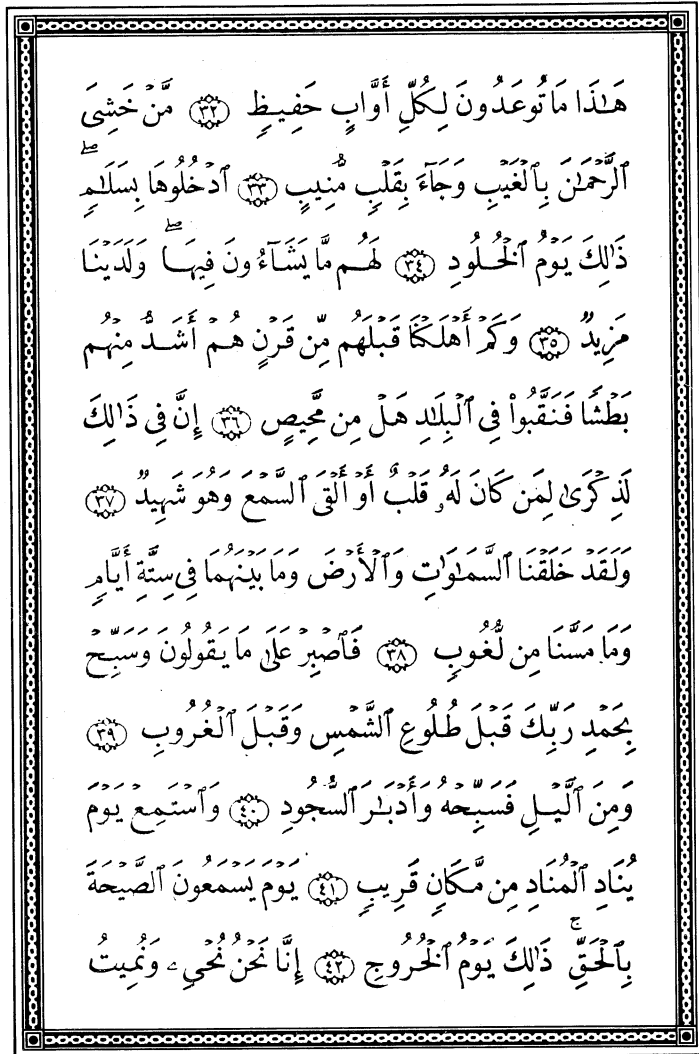 هَـٰذَا مَا تُوعَدُونَ لِكُلِّ أَوَّابٍ حَفِيظٍ ٣٢ مَّنْ خَشِىَ
ٱلرَّحْمَـٰنَ بِٱلْغَيْبِ وَجَآءَ بِقَلْبٍ مُّنِيبٍ ٣٣ ٱدْخُلُوهَا بِسَلَـٰمٍ ۖ
ذَٰلِكَ يَوْمُ ٱلْخُلُودِ ٣٤ لَهُم مَّا يَشَآءُونَ فِيهَا ۖ وَلَدَيْنَا
مَزِيدٌ ٣٥ وَكَمْ أَهْلَكْنَا قَبْلَهُم مِّن قَرْنٍ هُمْ أَشَدُّ مِنْهُم
بَطْشًا فَنَقَّبُوا۟ فِى ٱلْبِلَـٰدِ هَلْ مِن مَّحِيصٍ ٣٦ إِنَّ فِى ذَٰلِكَ
لَذِكْرَىٰ لِمَن كَانَ لَهُۥ قَلْبٌ أَوْ أَلْقَى ٱلسَّمْعَ وَهُوَ شَهِيدٌ ٣٧
وَلَقَدْ خَلَقْنَا ٱلسَّمَـٰوَٰتِ وَٱلْأَرْضَ وَمَا بَيْنَهُمَا فِى سِتَّةِ أَيَّامٍ
وَمَا مَسَّنَا مِن لُّغُوبٍ ٣٨ فَٱصْبِرْ عَلَىٰ مَا يَقُولُونَ وَسَبِّحْ
بِحَمْدِ رَبِّكَ قَبْلَ طُلُوعِ ٱلشَّمْسِ وَقَبْلَ ٱلْغُرُوبِ ٣٩
وَمِنَ ٱلَّيْلِ فَسَبِّحْهُ وَأَدْبَـٰرَ ٱلسُّجُودِ ٤٠ وَٱسْتَمِعْ يَوْمَ
يُنَادِ ٱلْمُنَادِ مِن مَّكَانٍ قَرِيبٍ ٤١ يَوْمَ يَسْمَعُونَ ٱلصَّيْحَةَ
بِٱلْحَقِّ ۚ ذَٰلِكَ يَوْمُ ٱلْخُرُوجِ ٤٢ إِنَّا نَحْنُ نُحْىِۦ وَنُمِيتُ